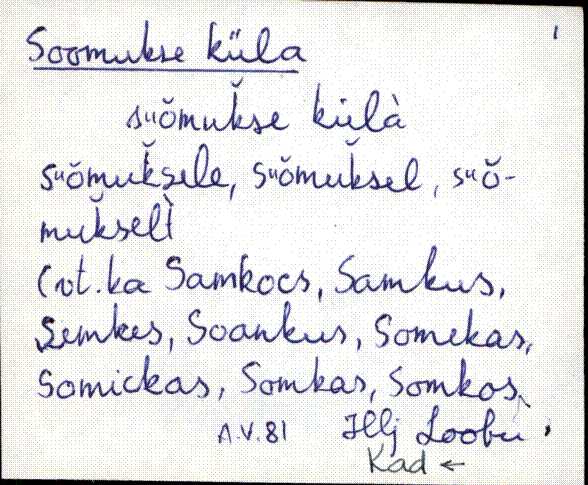 Soomukse küla
sᵘŏmuk̆se külà
sᵘŏmuk̆sele, sᵘŏmuk̆sel, sᵘŏ-
muk̆selt̀
(vt. ka Samkocs, Samkus,
Semkes, Soankus, Somekas,
Somickas, Somkas, Somkos
A.V. 81 Hlj Loobu
Kad ←